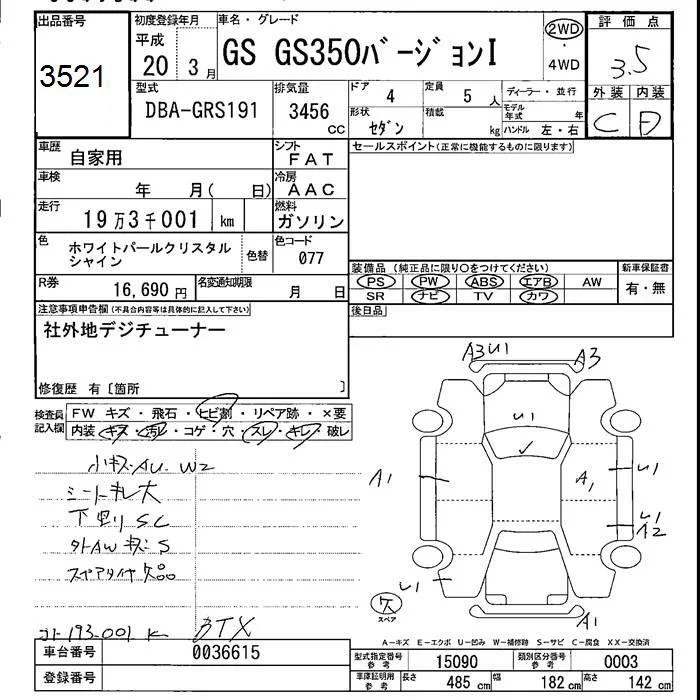 出品番号
3521
初度登録年月
平成
20 3月
車名・グレード
GS GS350バージョンI
2WD
・
4WD
評価点
3.5
外装 内装
C D
型式
DBA-GRS191
排気量
3456
CC
ドア
4
定員
5 人
形状
セダン
積載
kg
ディーラー・並行
モデル年式 年
ハンドル 左・右
車歴
自家用
シフト
FAT
車検
年 月( 日)
冷房
AAC
走行
19万3千001 km
燃料
ガソリン
色
ホワイトパールクリスタル
シャイン
色替
色コード
077
R券
16,690 円
名変通知期限
月 日
セールスポイント(正常に機能するものに限ります)
装備品 (純正品に限り○をつけてください)
PS PW ABS エアB AW
SR ナビ TV カワ
新車保証書
有・無
後日品
注意事項申告欄(不具合内容等は具体的に記入して下さい)
社外地デジチューナー
修復歴 有〔箇所 〕
検査員
記入欄
FW キズ・飛石・ヒビ割・リペア跡・×要
内装 キズ・汚れ・コゲ・穴・スレ・キレ・破レ
小キズ AU W2
シートキレ大
下回リ SC
外AWキズ S
スペアタイヤ欠品
193,001 K
A3 U1
A3
U1
A1
A1
U1
U1
A2
U1
A1
欠
スペア
A-キズ E-エクボ U-凹み W-補修跡 S-サビ C-腐食 XX-交換済
車台番号
0036615
登録番号
型式指定番号
参考
15090
類別区分番号
参考
0003
車庫証明用
参考
長さ 485 cm 幅 182 cm 高さ 142 cm